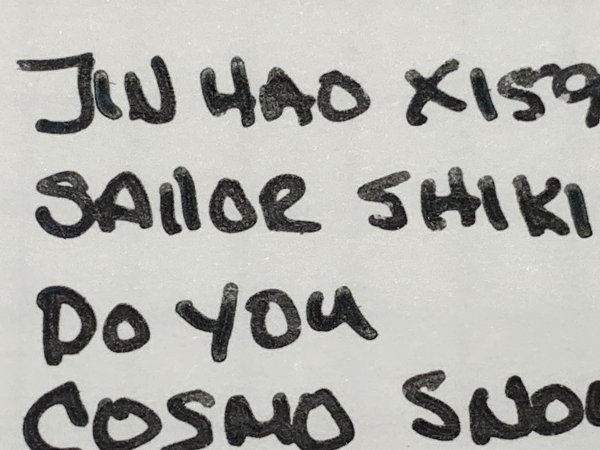 JIN HAO X159
SAILOR SHIKI
DO YOU
COSMO SNOW